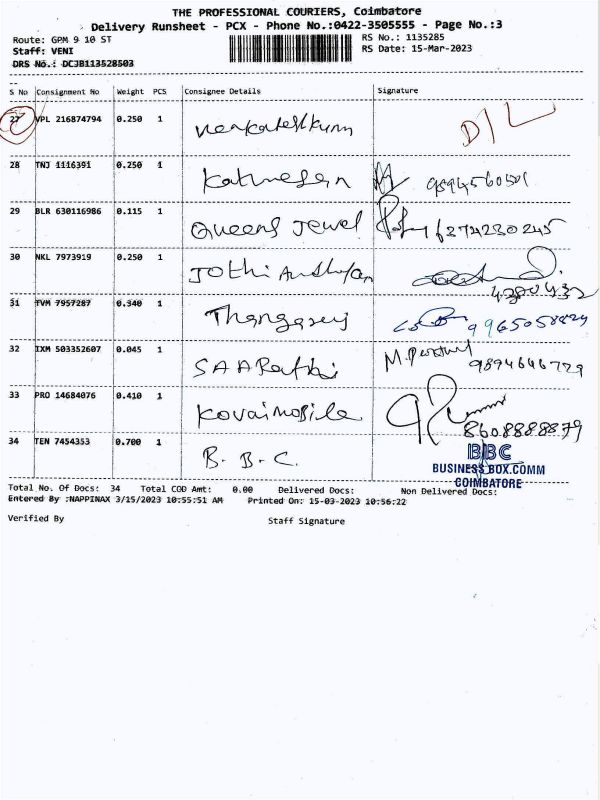 THE PROFESSIONAL COURIERS, Coimbatore
Delivery Runsheet - PCX - Phone No.:0422-3505555 - Page No.:3
Route: GPM 9 10 ST RS No.: 1135285
Staff: VENI RS Date: 15-Mar-2023
DRS No.: DCJB113528503
S No Consignment No Weight PCS Consignee Details Signature
27 VPL 216874794 0.250 1 D/L
28 TNJ 1116391 0.250 1
29 BLR 630116986 0.115 1 Queens Jewel 6274230245
30 NKL 7973919 0.250 1 Jothi
31 TVM 7957287 0.340 1 9965058829
32 IXM 503352607 0.045 1 9894646729
33 PRO 14684076 0.410 1 Kovai mobile 8608888879
34 TEN 7454353 0.700 1 B. B. C. BBC
BUSINESS BOX.COMM
COIMBATORE
Total No. Of Docs: 34 Total COD Amt: 0.00 Delivered Docs: Non Delivered Docs:
Entered By :NAPPINAX 3/15/2023 10:55:51 AM Printed On: 15-03-2023 10:56:22
Verified By Staff Signature